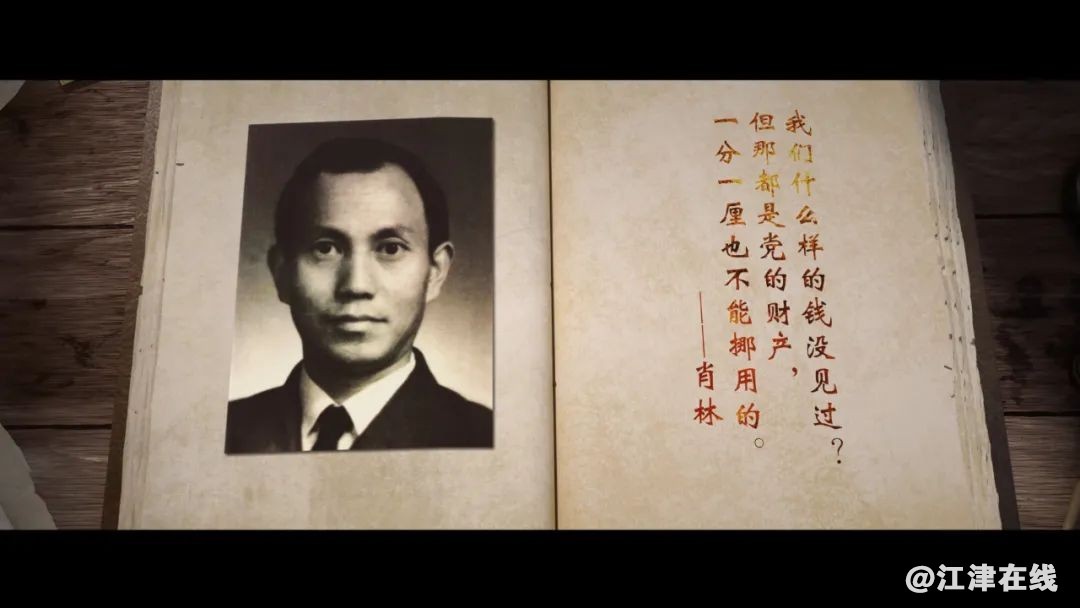 我们什么样的钱没见过？
但那都是党的财产，
一分一厘也不能挪用的。
——肖林
@江津在线